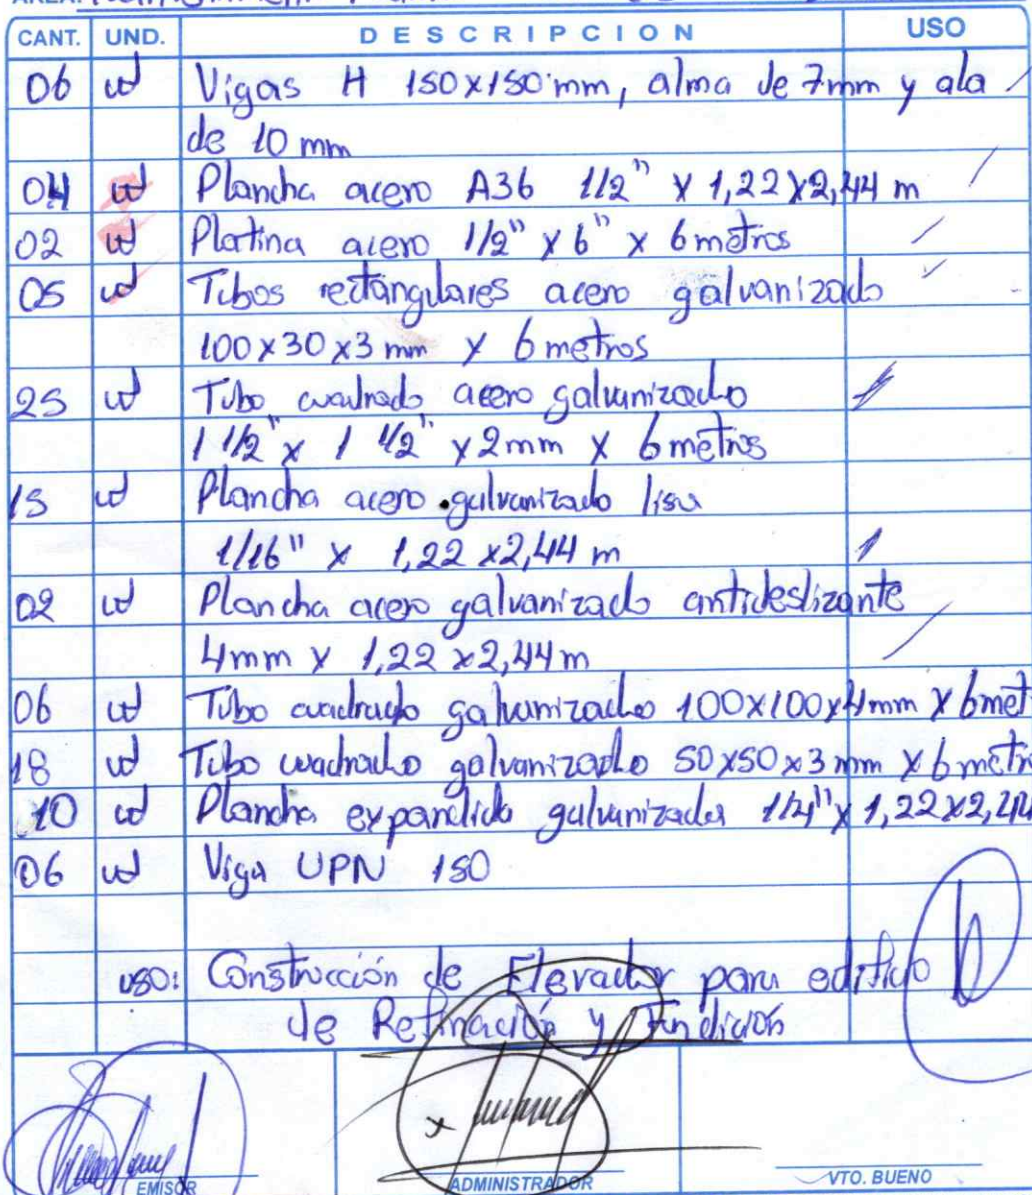 AREA:
CANT. UND. DESCRIPCION USO
06 ud Vigas H 150x150 mm, alma de 7mm y ala
de 10 mm
04 ud Plancha acero A36 1/2" x 1,22x2,44 m
02 ud Platina acero 1/2" x 6" x 6 metros
05 ud Tubos rectangulares acero galvanizado
100x30x3 mm x 6 metros
25 ud Tubo cuadrado acero galvanizado
1 1/2" x 1 1/2" x 2mm x 6 metros
15 ud Plancha acero galvanizado lisa
1/16" x 1,22 x2,44 m
02 ud Plancha acero galvanizado antideslizante
4mm x 1,22 x2,44 m
06 ud Tubo cuadrado galvanizado 100x100x4mm x 6met
18 ud Tubo cuadrado galvanizado 50x50x3 mm x 6 metr
10 ud Plancha expandida galvanizada 1/4" x 1,22x2,44
06 ud Viga UPN 150
uso: Construcción de Elevador para edificio
de Refinación y Fundición
EMISOR ADMINISTRADOR VTO. BUENO